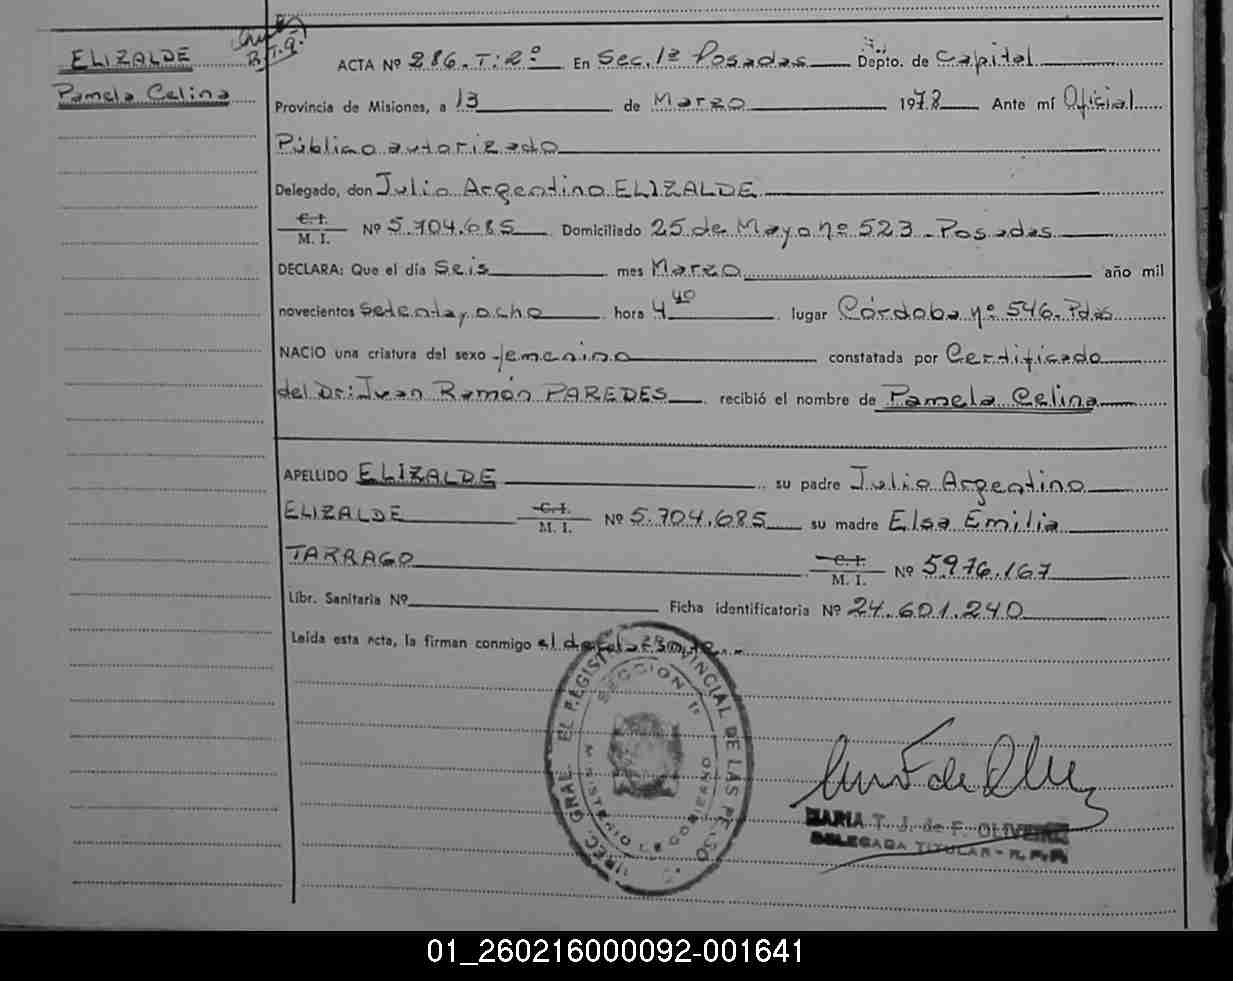 ELIZALDE
Pamela Celina
ACTA Nº 286. T: 2º En Sec. 1ª Posadas Depto. de Capital
Provincia de Misiones, a 13 de Marzo 1978 Ante mí Oficial
Público autorizado
Delegado, don Julio Argentino ELIZALDE
C. I.
M. I. Nº 5.704.685 Domiciliado 25 de Mayo nº 523 - Posadas
DECLARA: Que el día Seis mes Marzo año mil
novecientos Setenta y ocho hora 4 40 lugar Córdoba nº 546. Pdas
NACIO una criatura del sexo femenino constatada por Certificado
del Dr: Juan Ramón PAREDES recibió el nombre de Pamela Celina
APELLIDO ELIZALDE su padre Julio Argentino
ELIZALDE C. I. M. I. Nº 5.704.685 su madre Elsa Emilia
TARRAGO C. I. M. I. Nº 5.976.167
Libr. Sanitaria Nº Ficha identificatoria Nº 24.601.240
Leída esta acta, la firman conmigo el declarante
SECCION 1ª
MINISTERIO DE GOBIERNO
MARIA T. J. de F. OLIVEIRA
DELEGADA TITULAR - R. P. P.
01_260216000092-001641